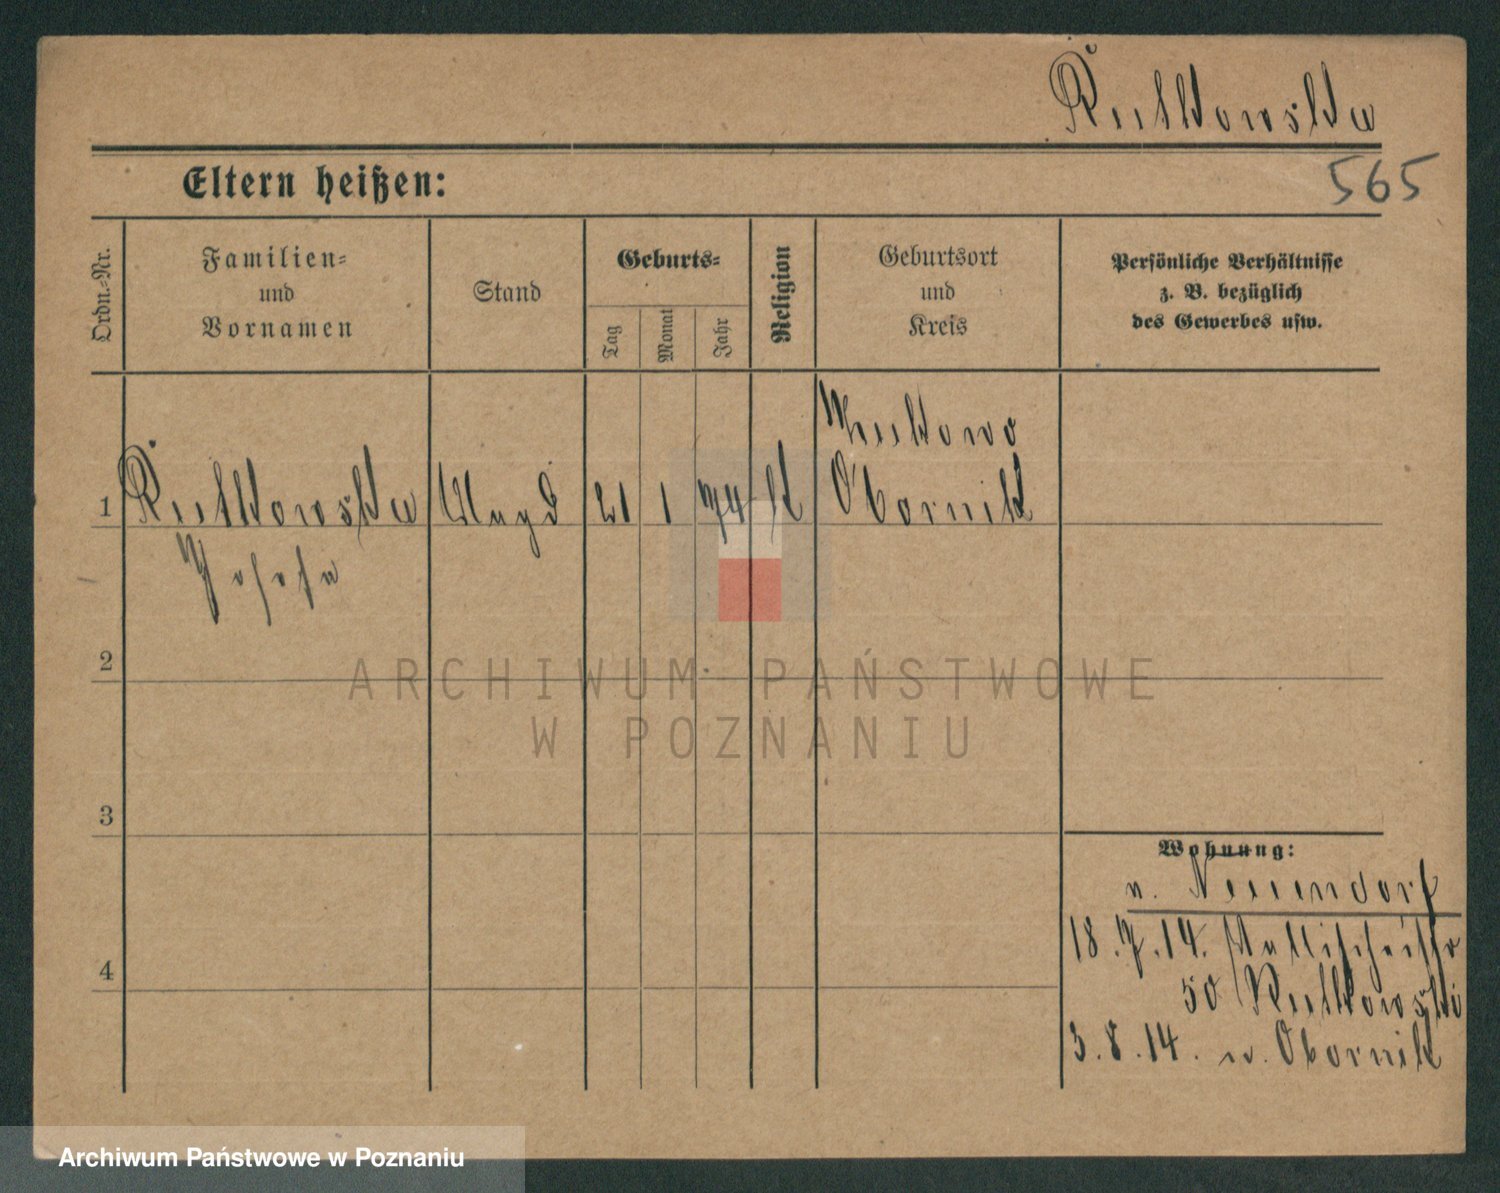 Rutkowska
565
Eltern heißen:
Ordn.-Nr.
Familien-
und
Vornamen
Stand
Geburts-
Tag
Monat
Jahr
Religion
Geburtsort
und
Kreis
Persönliche Verhältnisse
z. B. bezüglich
des Gewerbes usw.
1
Rutkowska
Magd
21
1
74
k
Obornik
Josefa
2
3
4
Wohnung:
v. Neuendorf
18.7.14.
50 Rutkowski
3.8.14. n. Obornik
ARCHIWUM PAŃSTWOWE
W POZNANIU
Archiwum Państwowe w Poznaniu